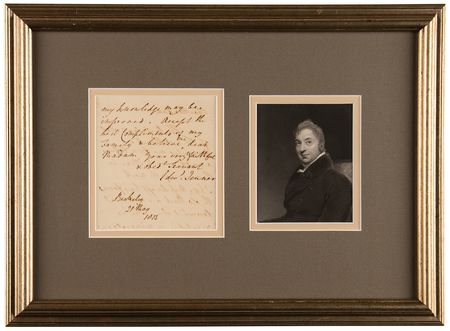 my knowledge may be
improved. Accept the
best Compliments of my
family & believe, dear
Madam, Your very faithful
& obedt Servant
Edwd Jenner
Berkeley
21 May
1813